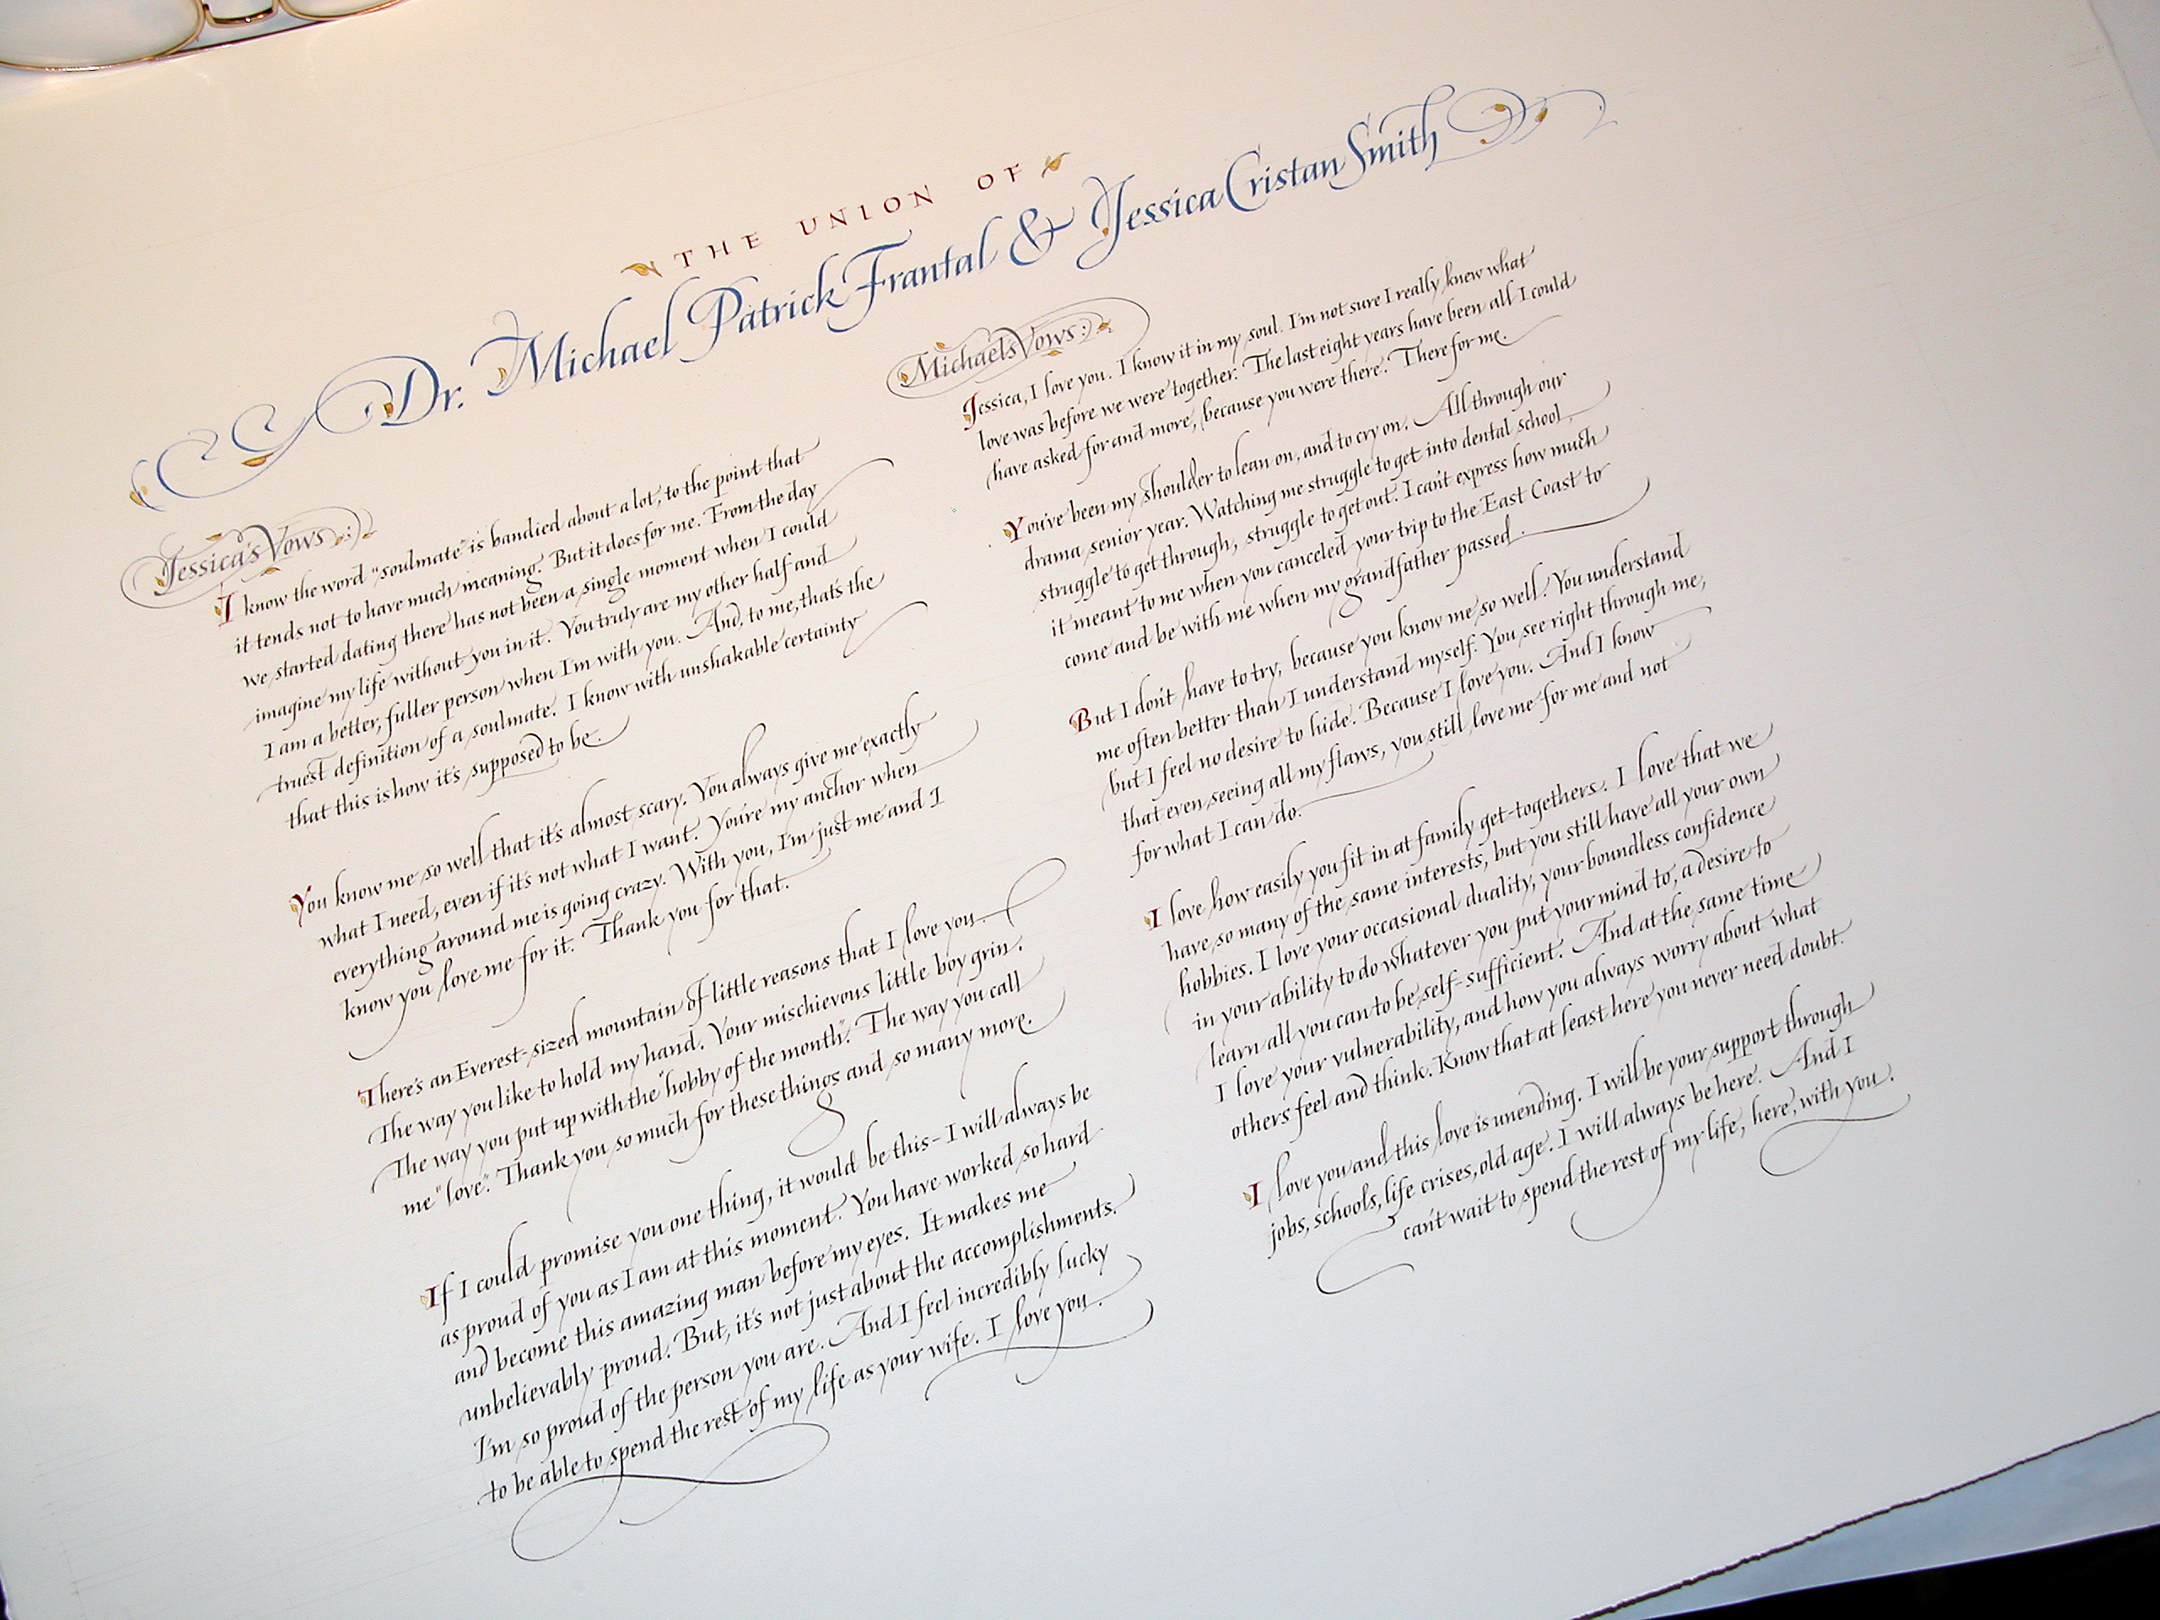 THE UNION OF
Dr. Michael Patrick Frantal & Jessica Cristan Smith
Jessica's Vows:
I know the word "soulmate" is bandied about a lot, to the point that
it tends not to have much meaning. But it does for me. From the day
we started dating there has not been a single moment when I could
imagine my life without you in it. You truly are my other half and
I am a better, fuller person when I'm with you. And, to me, that's the
truest definition of a soulmate. I know with unshakable certainty
that this is how it's supposed to be.
You know me so well that it's almost scary. You always give me exactly
what I need, even if it's not what I want. You're my anchor when
everything around me is going crazy. With you, I'm just me and I
know you love me for it. Thank you for that.
There's an Everest-sized mountain of little reasons that I love you.
The way you like to hold my hand. Your mischievous little boy grin.
The way you put up with the "hobby of the month". The way you call
me "love". Thank you so much for these things and so many more.
If I could promise you one thing, it would be this - I will always be
as proud of you as I am at this moment. You have worked so hard
and become this amazing man before my eyes. It makes me
unbelievably proud. But, it's not just about the accomplishments.
I'm so proud of the person you are. And I feel incredibly lucky
to be able to spend the rest of my life as your wife. I love you.
Michael's Vows:
Jessica, I love you. I know it in my soul. I'm not sure I really knew what
love was before we were together. The last eight years have been all I could
have asked for and more, because you were there. There for me.
You've been my shoulder to lean on, and to cry on. All through our
drama senior year. Watching me struggle to get into dental school,
struggle to get through, struggle to get out. I can't express how much
it meant to me when you canceled your trip to the East Coast to
come and be with me when my grandfather passed.
But I don't have to try, because you know me so well. You understand
me often better than I understand myself. You see right through me,
but I feel no desire to hide. Because I love you. And I know
that even seeing all my flaws, you still love me for me and not
for what I can do.
I love how easily you fit in at family get-togethers. I love that we
have so many of the same interests, but you still have all your own
hobbies. I love your occasional duality, your boundless confidence
in your ability to do whatever you put your mind to, a desire to
learn all you can to be self-sufficient. And at the same time
I love your vulnerability, and how you always worry about what
others feel and think. Know that at least here you never need doubt.
I love you and this love is unending. I will be your support through
jobs, schools, life crises, old age. I will always be here. And I
can't wait to spend the rest of my life, here, with you.